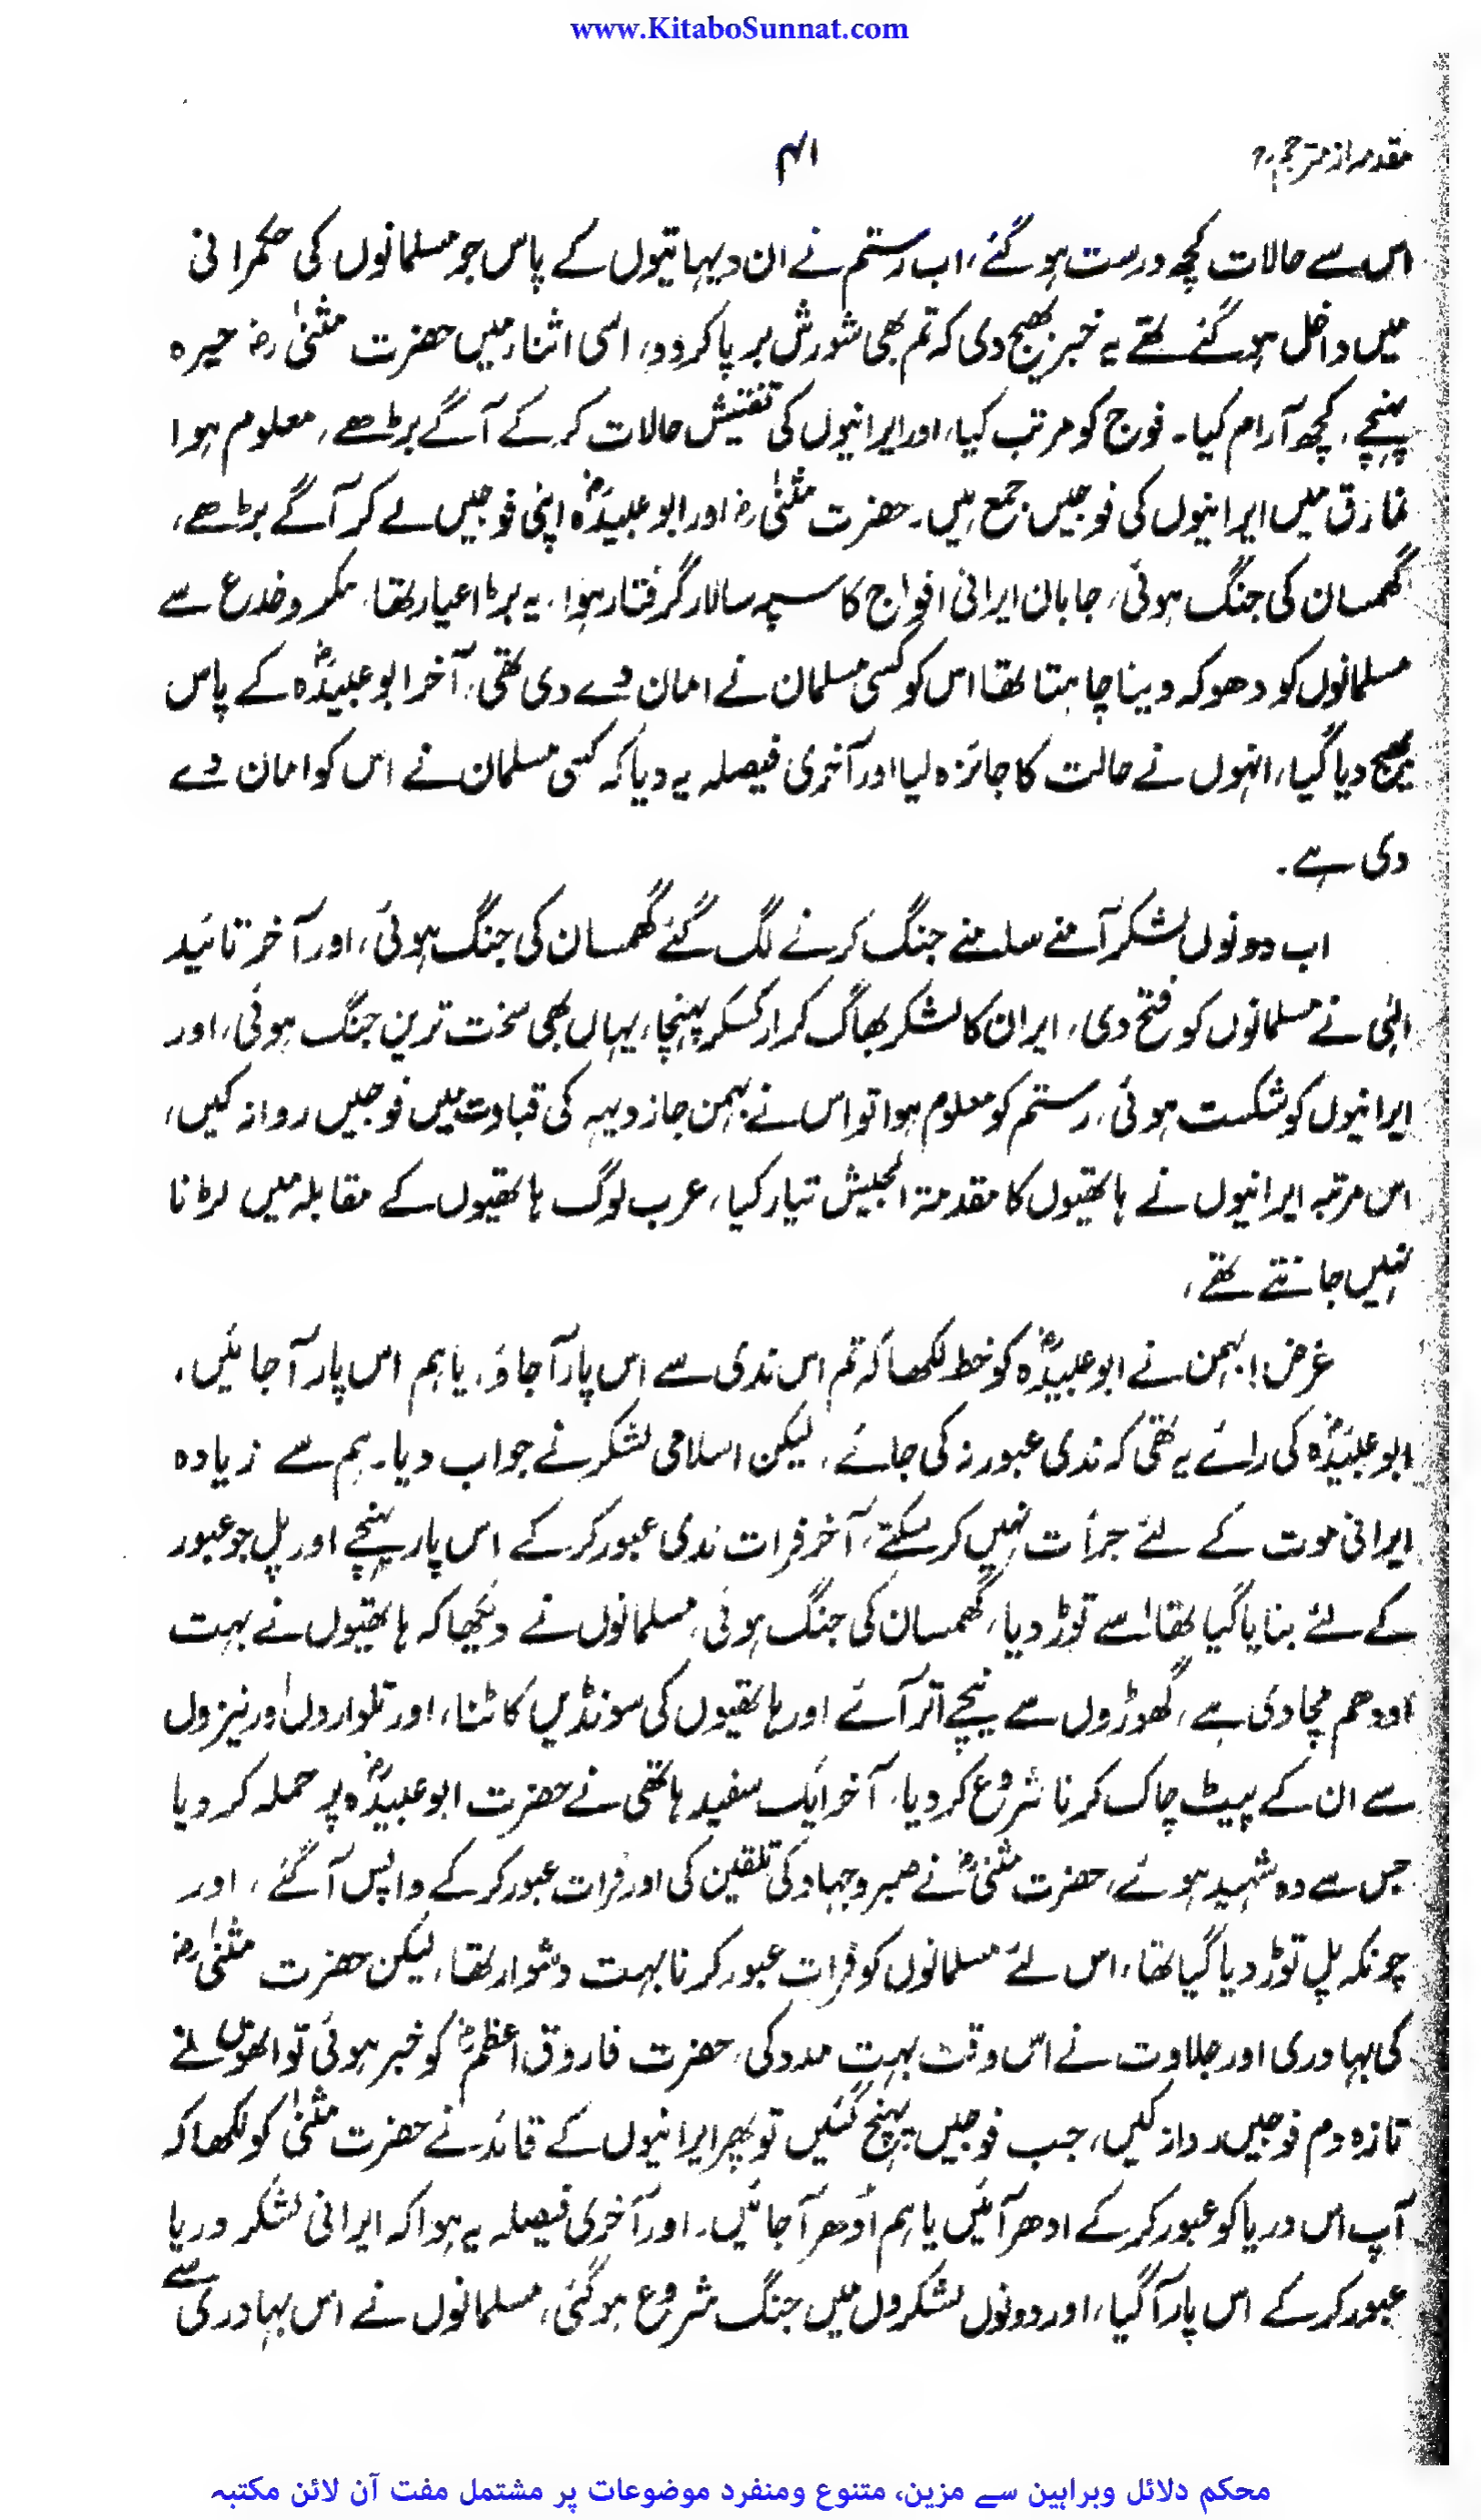 www.KitaboSunnat.com
مقدمہ از مترجم
۴۱
اس سے حالات کچھ درست ہو گئے، اب رستم نے ان دیہاتیوں کے پاس جو مسلمانوں کی حکمرانی
میں داخل ہو گئے تھے یہ خبر بھیج دی کہ تم بھی شورش برپا کردو، اسی اثناء میں حضرت مثنیٰ رضؓ حیرہ
پہنچے، کچھ آرام کیا۔ فوج کو مرتب کیا، اور ایرانیوں کی تفتیش حالات کر کے آگے بڑھے، معلوم ہوا
نمارق میں ایرانیوں کی فوجیں جمع ہیں۔ حضرت مثنیٰ رضؓ اور ابوعبیدؓہ اپنی فوجیں لے کر آگے بڑھے،
گھمسان کی جنگ ہوئی، جابان ایرانی افواج کا سپہ سالار گرفتار ہوا، یہ بڑا عیار تھا، مکر و خدع سے
مسلمانوں کو دھوکہ دینا چاہتا تھا اس کو کسی مسلمان نے امان دے دی تھی، آخر ابوعبیدؓہ کے پاس
بھیج دیا گیا، انہوں نے حالت کا جائزہ لیا اور آخری فیصلہ یہ دیا کہ کسی مسلمان نے اس کو امان دے
دی ہے۔
اب دونوں لشکر آمنے سامنے جنگ کرنے لگ گئے گھمسان کی جنگ ہوئی، اور آخر تائید
الٰہی نے مسلمانوں کو فتح دی، ایران کا لشکر بھاگ کرار کسکر پہنچا، یہاں بھی سخت ترین جنگ ہوئی، اور
ایرانیوں کو شکست ہوئی، رستم کو معلوم ہوا تو اس نے بہمن جازویہہ کی قیادت میں فوجیں روانہ کیں،
اس مرتبہ ایرانیوں نے ہاتھیوں کا مقدمۃ الجیش تیار کیا، عرب لوگ ہاتھیوں کے مقابلہ میں لڑنا
نہیں جانتے تھے،
غرض! بہمن نے ابوعبیدؓہ کو خط لکھا کہ تم اس ندی سے اس پار آجاؤ، یا ہم اس پار آجائیں،
ابوعبیدؓہ کی رائے یہ تھی کہ ندی عبور نہ کی جائے، لیکن اسلامی لشکر نے جواب دیا۔ ہم سے زیادہ
ایرانی موت کے لئے جرأت نہیں کرسکتے، آخر فرات ندی عبور کرکے اس پار پہنچے اور پل جو عبور
کے لئے بنایا گیا تھا اسے توڑ دیا، گھمسان کی جنگ ہوئی، مسلمانوں نے دیکھا کہ ہاتھیوں نے بہت
اودھم مچا دی ہے، گھوڑوں سے نیچے اتر آئے اور ہاتھیوں کی سونڈیں کاٹنا، اور تلواروں اور نیزوں
سے ان کے پیٹ چاک کرنا شروع کردیا، آخر ایک سفید ہاتھی نے حضرت ابوعبیدؓہ پر حملہ کردیا
جس سے وہ شہید ہوئے، حضرت مثنیٰؓ نے صبر و جہاد کی تلقین کی اور فرات عبور کرکے واپس آگئے، اور
چونکہ پل توڑ دیا گیا تھا، اس لئے مسلمانوں کو فرات عبور کرنا بہت دشوار تھا، لیکن حضرت مثنیٰ رضؓ
کی بہادری اور جلاوت نے اس وقت بہت مدد کی، حضرت فاروق اعظمؓ کو خبر ہوئی تو انھوں نے
تازہ دم فوجیں روانہ کیں، جب فوجیں پہنچ گئیں تو پھر ایرانیوں کے قائد نے حضرت مثنیٰؓ کو لکھا کہ
آپ اس دریا کو عبور کرکے ادھر آئیں یا ہم اُدھر آجائیں۔ اور آخری فیصلہ یہ ہوا کہ ایرانی لشکر دریا
عبور کرکے اس پار آگیا، اور دونوں لشکروں میں جنگ شروع ہوگئی، مسلمانوں نے اس بہادری سے
محکم دلائل وبراہین سے مزین، متنوع ومنفرد موضوعات پر مشتمل مفت آن لائن مکتبہ